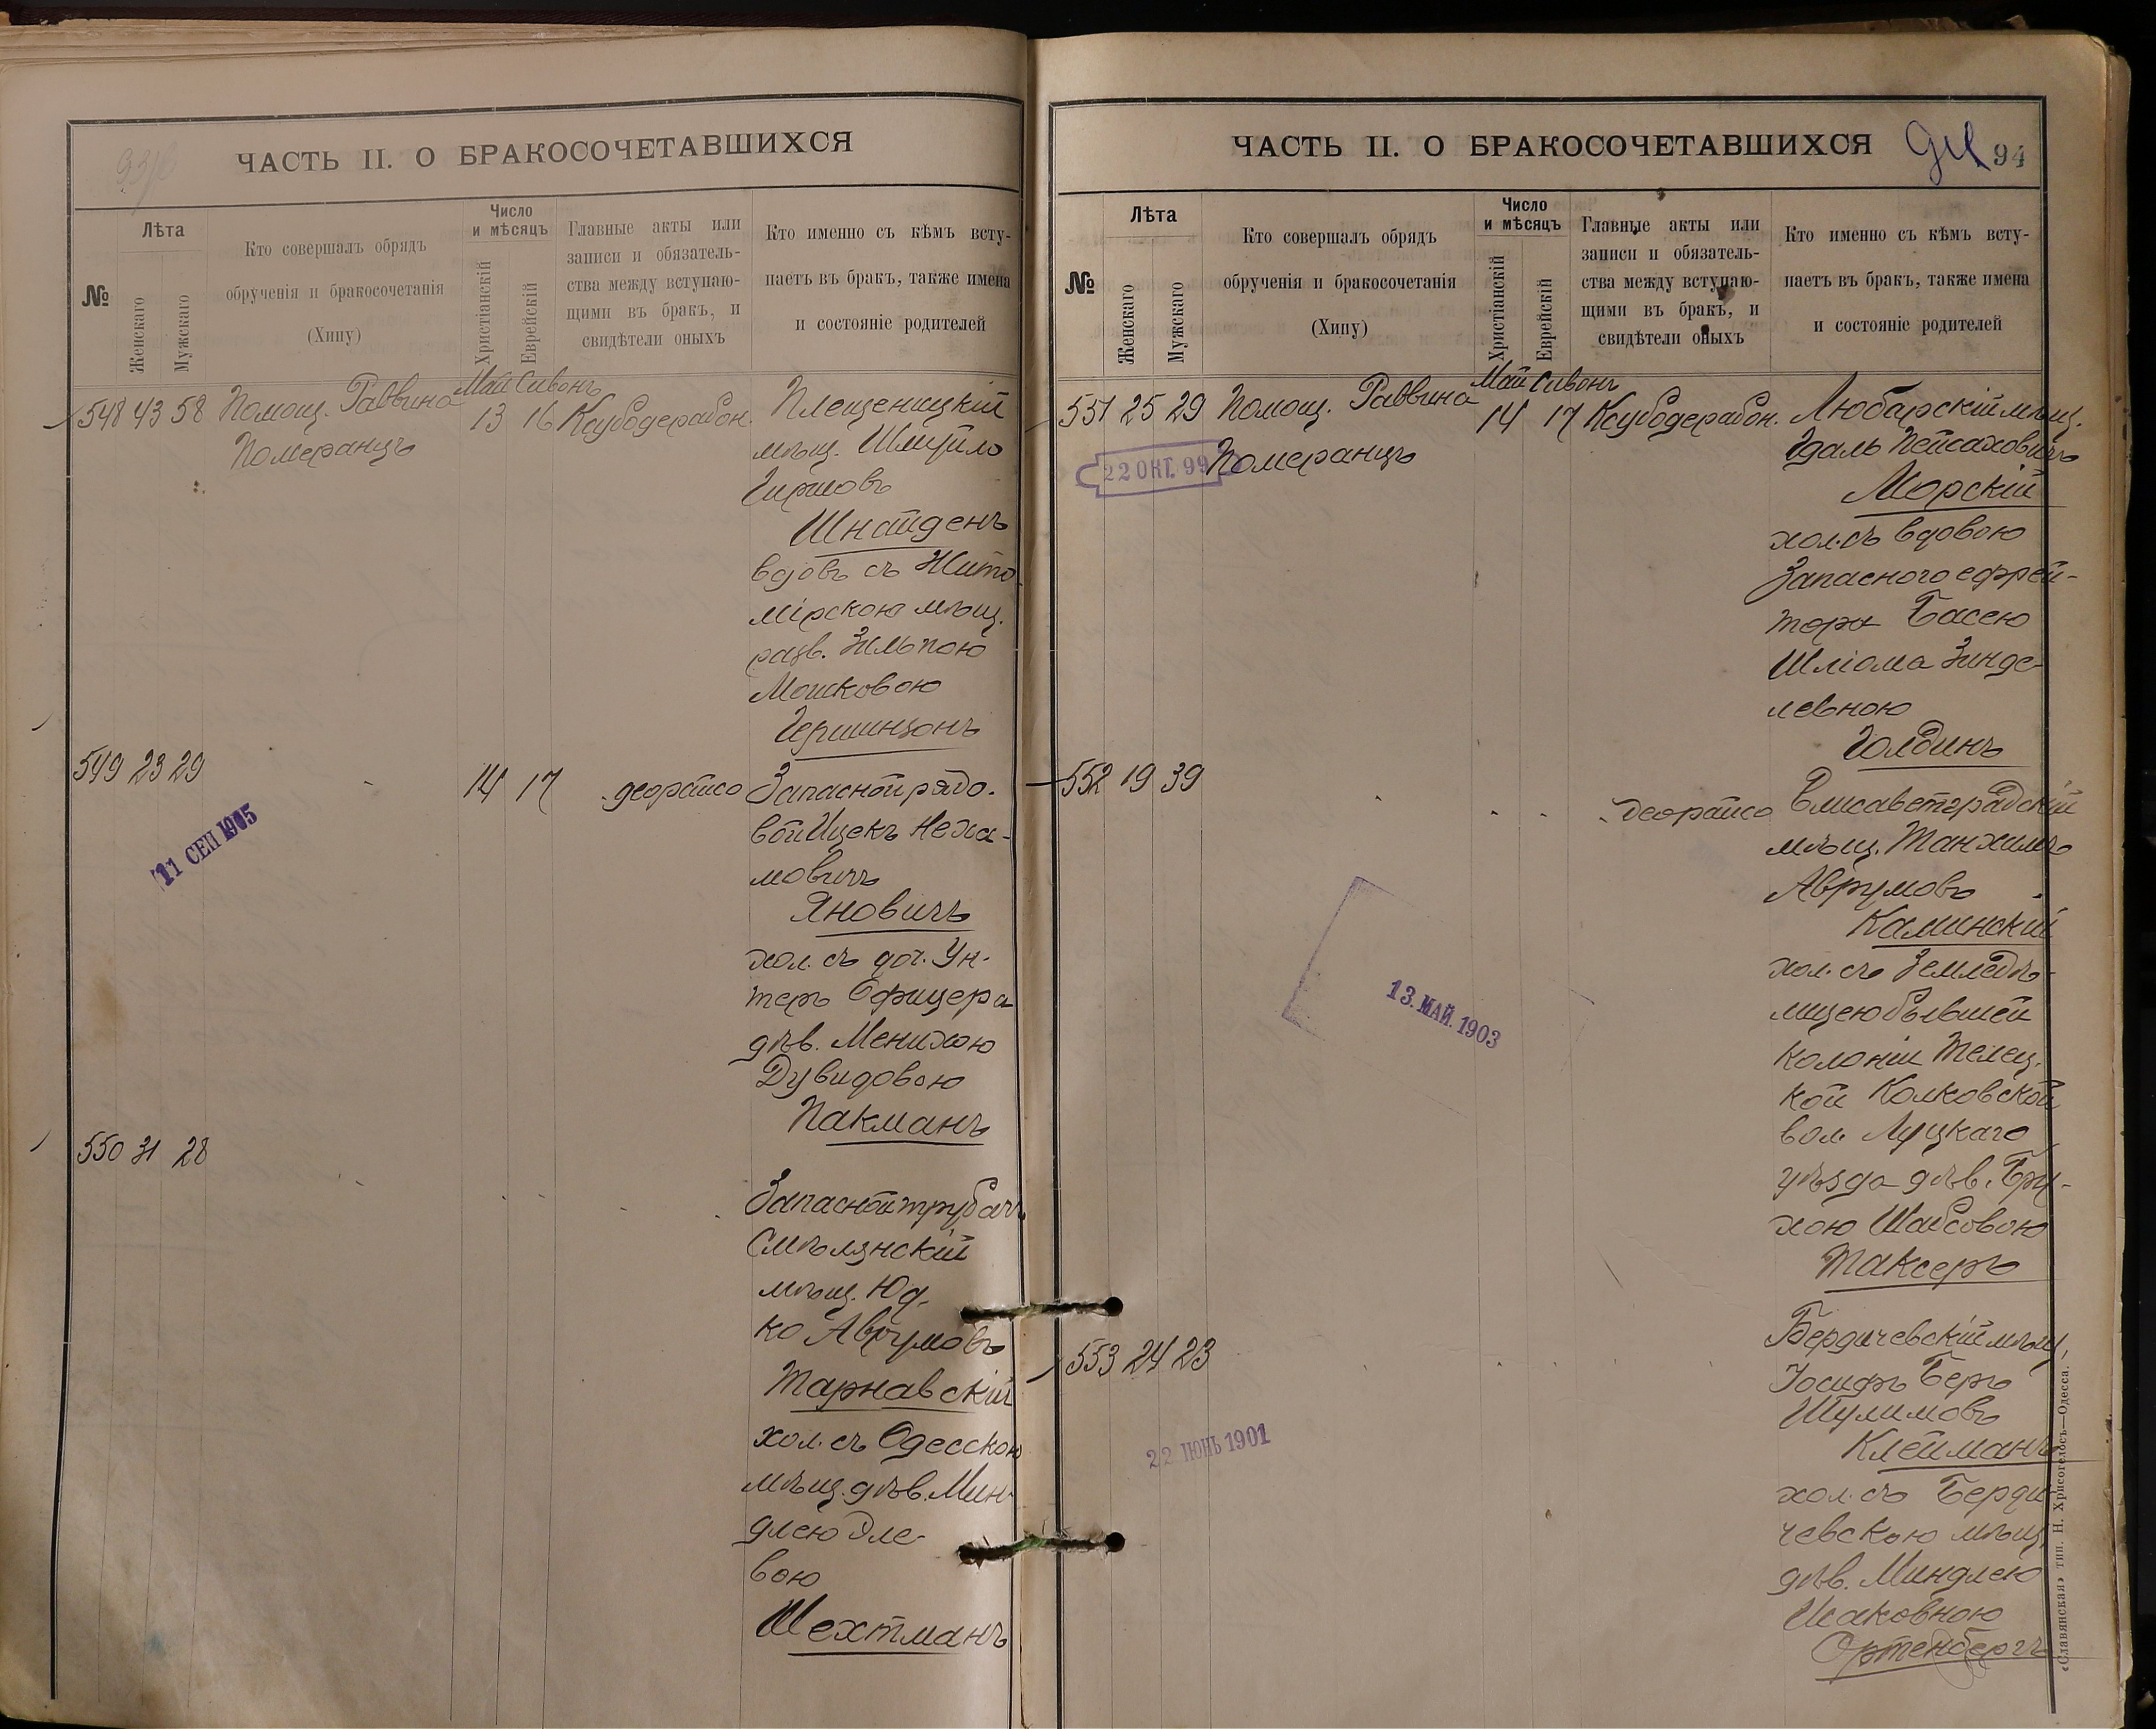 ЧАСТЬ II. О БРАКОСОЧЕТАВШИХСЯ
№
Лѣта
Женскаго
Мужскаго
Кто совершалъ обрядъ
обрученія и бракосочетанія
(Хипу)
Число
и мѣсяцъ
Христіанскій
Еврейскій
Главные акты или
записи и обязатель-
ства между вступаю-
щими въ бракъ, и
свидѣтели оныхъ
Кто именно съ кѣмъ всту-
паетъ въ бракъ, также имена
и состояніе родителей
548 43 58 Помощ. Раввина
Померанцъ
Май Сивонъ
13 16 Ксубодерабон.
Плещеницкій
мѣщ. Шмуйло
Гиршовъ
Шнайденъ
вдовъ съ Жито-
мірскою мѣщ.
разв. Зильпою
Мошковою
Гершинзонъ
549 23 29
14 17 деорайсо
11 СЕН 1905
Запасной рядо-
вой Ицекъ Неха-
мовичъ
Яновичъ
хол. съ доч. Ун-
теръ Офицера
дѣв. Менихою
Дувидовою
Пакманъ
550 31 28
Запасной трубачъ
Смѣлянскій
мѣщ. Юд-
ко Аврумовъ
Тарнавскій
хол. съ Одесскою
мѣщ. дѣв. Мин-
длею Эле-
вою
Шехтманъ
ЧАСТЬ II. О БРАКОСОЧЕТАВШИХСЯ
94 94
№
Лѣта
Женскаго
Мужскаго
Кто совершалъ обрядъ
обрученія и бракосочетанія
(Хипу)
Число
и мѣсяцъ
Христіанскій
Еврейскій
Главные акты или
записи и обязатель-
ства между вступаю-
щими въ бракъ, и
свидѣтели оныхъ
Кто именно съ кѣмъ всту-
паетъ въ бракъ, также имена
и состояніе родителей
551 25 29 Помощ. Раввина
Померанцъ
22 ОКТ. 99
Май Сивонъ
14 17 Ксубодерабон.
Любарскій мѣщ.
Идаль Пейсаховичъ
Морскій
хол. съ вдовою
Запасного ефрей-
тора Басею
Шліома Зинде-
левною
Голдинъ
552 19 39
деорайсо
13. МАЙ. 1903
Елисаветградскій
мѣщ. Танхимъ
Аврумовъ
Каминскій
хол. съ Земледѣ-
лицею бывшей
колоніи Телец-
кой Колковской
вол. Луцкаго
уѣзда дѣв. Бру-
хою Шабсовою
Таксеръ
553 24 23
22 ІЮНЬ 1901
Бердичевскій мѣщ.
Іосифъ Беръ
Шулимовъ
Клейманъ
хол. съ Берди-
чевскою мѣщ.
дѣв. Миндлею
Исаковною
Ортенбергъ
«Славянская» тип. Н. Хрисогелосъ—Одесса.